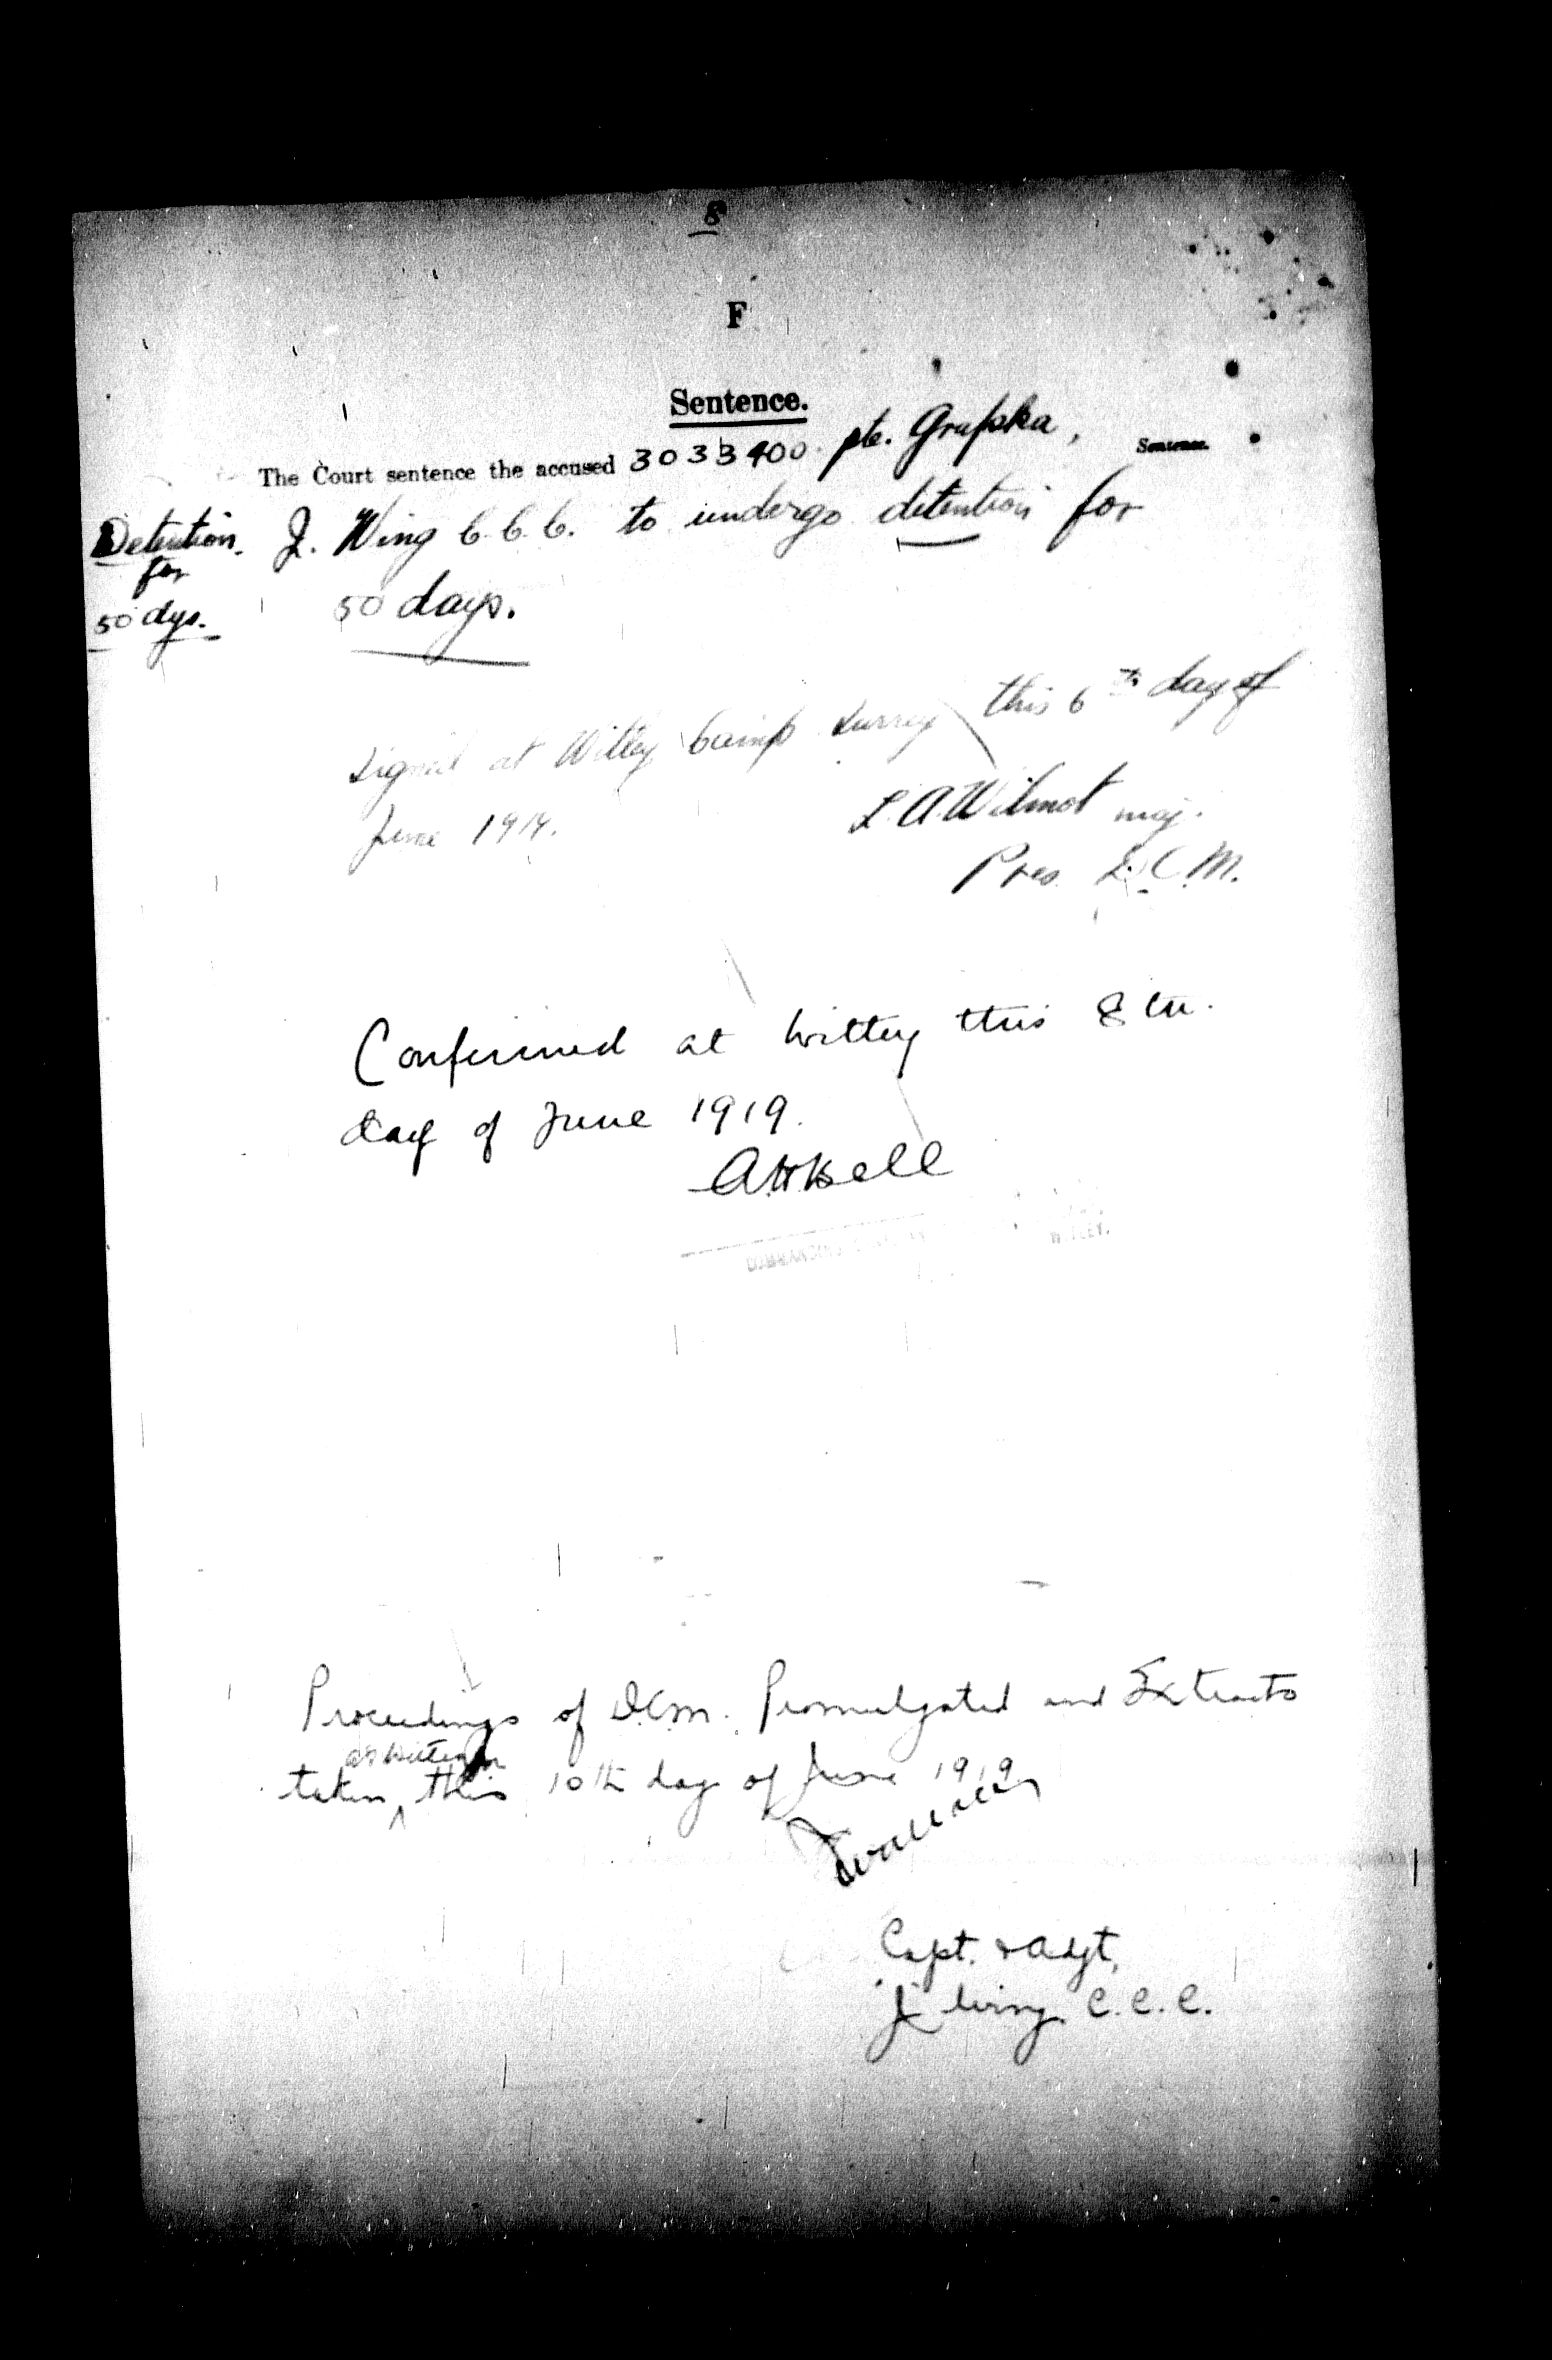 8
F
Sentence.
The Court sentence the accused 3033400 pte. Grupka, Sentence.
Detention. J. Wing C.C.C. to undergo detention for
for
50 dys. 50 days.
Signed at Witley Camp Surrey this 6th day of
June 1919.
L.A. Wilmot maj.
Pres. D.C.M.
Confirmed at Witley this 8th.
day of June 1919.
A H Bell
COMMANDING WITLEY.
Proceedings of D.C.M. Promulgated and Extracts
at Witley
taken this 10th day of June 1919
Capt. & Adjt,
"J" Wing. C.C.C.